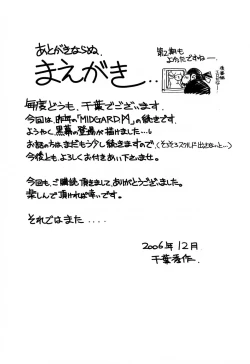 あとがきならぬ、
まえがき..
第2期も
よかったですねー。
毎度どうも、千葉でございます。
今回は、昨年の「MIDGARD」の続きです。
ようやく、黒幕の登場が描けました…。
お話の方は、まだもう少し続きますので、
今後とも、よろしくお付きあい下さいませ。
今回も、ご購読頂きまして、ありがとうございました。
楽しんで頂ければ幸いです。
それではまた....
2006年12月
千葉秀作.